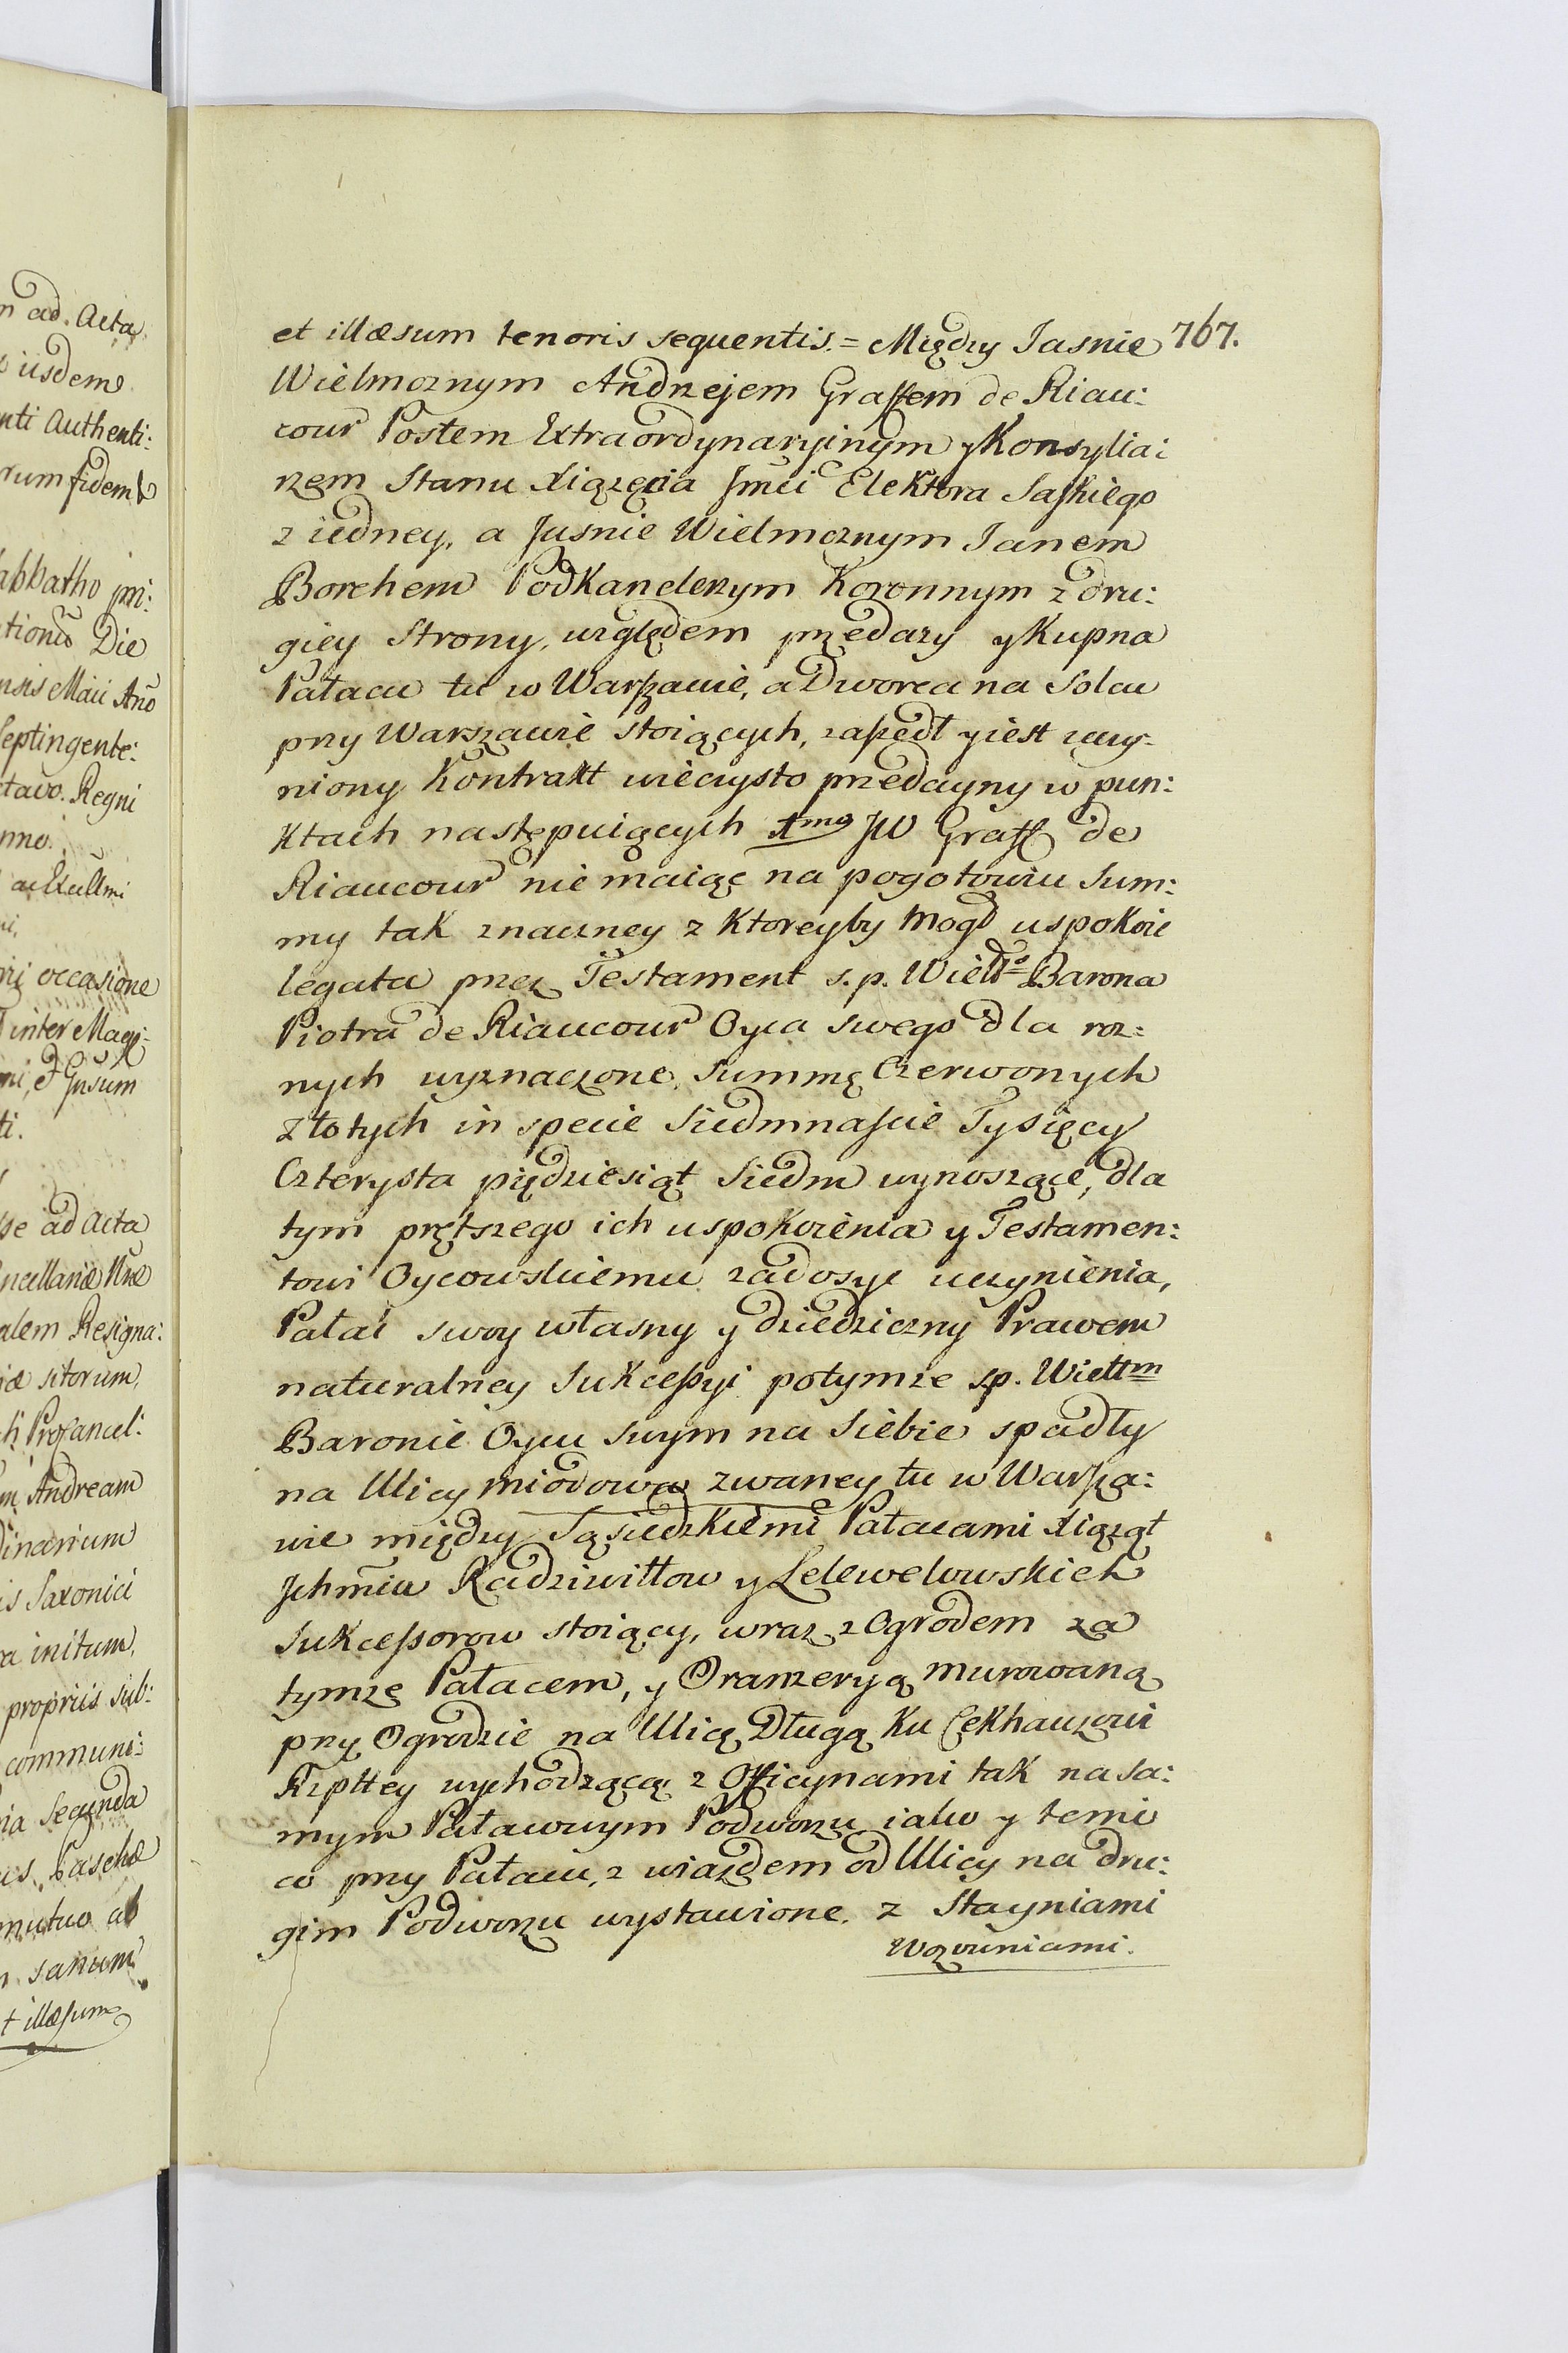 n ad. Acta
iisdem
nti Authenti:
rum fidem
abbatho pri:
tionis Die
nsis Maii Ano
septingente:
tavo. Regni
nno.
ni,
ni occasione
inter Magn:
ti.
se ad Acta
ncellariæ
alem Resigna:
iæ sitorum,
h Procancel:
m, Andream
dinarium
is Saxonici
a initum,
propriis sub:
communi:
ia Secunda
is Paschæ
mutuo ab
n. sanum
t illæsum
767.
et illæsum tenoris sequentis. = Między Iasnie
Wielmoznym Andrzejem Graffem de Riau:
cour Posłem Extraordynaryinym y Konsylia:
rzem Stanu Xiązęcia Jmci Elektora Saskiego
z iedney, a Jasnie Wielmoznym Ianem
Borchem Podkanclerzym Koronnym z dru:
giey Strony, względem przedazy y Kupna
Pałacu tu w Warszawie, a Dworca na Solcu
przy Warszawie stoiących, zaszedł y iest uczy:
niony Kontrakt wieczysto przedayny w pun:
ktach następuiących 1mo JW Graff de
Riaucour nie maiąc na pogotowiu Sum:
my tak znaczney z ktoreyby mogł uspokoic
legata przez Testament s. p. Wiel Barona
Piotra de Riaucour Oyca swego dla roz:
nych wyznaczone, summę Czerwonych
złotych in specie Siedmnascie Tysięcy
Czterysta piędziesiąt Siedm wynoszące, dla
tym prętszego ich uspokoienia y Testamen:
towi Oycowskiemu zadosyc uczynienia,
Pałac swoy własny y dziedziczny Prawem
naturalney Sukcessyi potymze s.p. Wiellm
Baronie Oycu swym na Siebie spadły
na Ulicy miodowa zwaney tu w Warsza:
wie między Sąsiedzkiemi Pałacami Xiąząt
Jchmciw Radziwiłłow y Lelewelowskich
Sukcessorow stoiący, wraz z Ogrodem za
tymze Pałacem, y Oranzeryą murowaną
przy Ogrodzie na Ulicę Długą ku Cekhauzowi
Rzpltey wychodzącą z Officynami tak na sa:
mym Pałacowym Podworzu iako y temi
co przy Pałacu, z wiazdem od Ulicy na dru:
gim Podworzu wystawione. z Stayniami
Wozowniami.